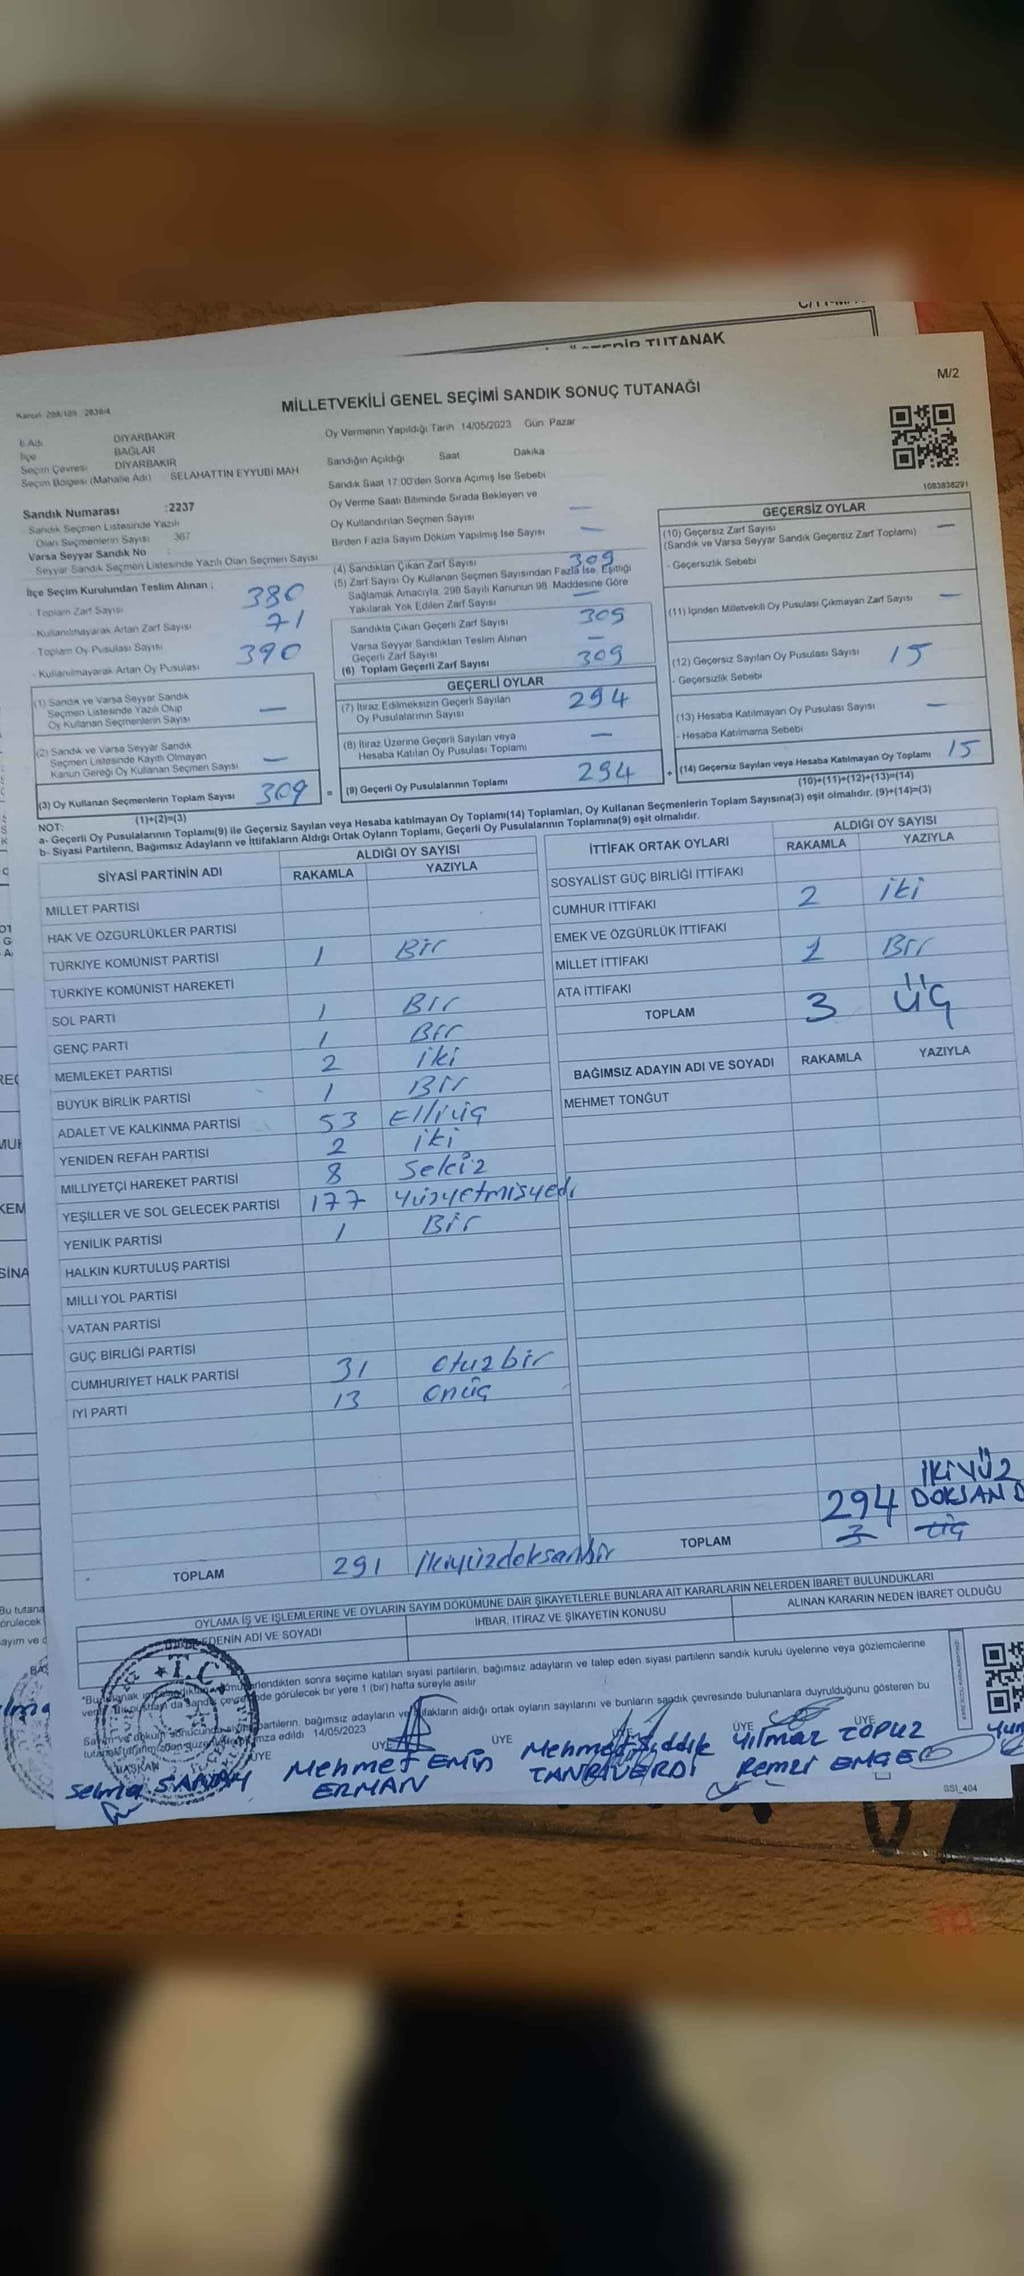 TUTANAK
M/2
MİLLETVEKİLİ GENEL SEÇİMİ SANDIK SONUÇ TUTANAĞI
İl Adı DİYARBAKIR
İlçe BAĞLAR
Seçim Çevresi DİYARBAKIR
Seçim Bölgesi (Mahalle Adı) SELAHATTİN EYYUBİ MAH
Sandık Numarası :2237
- Sandık Seçmen Listesinde Yazılı
Olan Seçmenlerin Sayısı 367
Varsa Seyyar Sandık No
- Seyyar Sandık Seçmen Listesinde Yazılı Olan Seçmen Sayısı
Oy Vermenin Yapıldığı Tarih 14/05/2023 Gün: Pazar
Sandığın Açıldığı Saat Dakika
Sandık Saat 17:00'den Sonra Açılmış İse Sebebi
Oy Verme Saati Bitiminde Sırada Bekleyen ve
Oy Kullandırılan Seçmen Sayısı —
Birden Fazla Sayım Döküm Yapılmış İse Sayısı —
1083838291
İlçe Seçim Kurulundan Teslim Alınan :
- Toplam Zarf Sayısı 380
- Kullanılmayarak Artan Zarf Sayısı 71
- Toplam Oy Pusulası Sayısı 390
- Kullanılmayarak Artan Oy Pusulası
(1) Sandık ve Varsa Seyyar Sandık
Seçmen Listesinde Yazılı Olup
Oy Kullanan Seçmenlerin Sayısı —
(2) Sandık ve Varsa Seyyar Sandık
Seçmen Listesinde Kayıtlı Olmayan
Kanun Gereği Oy Kullanan Seçmen Sayısı —
(3) Oy Kullanan Seçmenlerin Toplam Sayısı 309
(1)+(2)=(3)
(4) Sandıktan Çıkan Zarf Sayısı 309
(5) Zarf Sayısı Oy Kullanan Seçmen Sayısından Fazla İse, Eşitliği
Sağlamak Amacıyla, 298 Sayılı Kanunun 98. Maddesine Göre
Yakılarak Yok Edilen Zarf Sayısı —
Sandıkta Çıkan Geçerli Zarf Sayısı 309
Varsa Seyyar Sandıktan Teslim Alınan
Geçerli Zarf Sayısı —
(6) Toplam Geçerli Zarf Sayısı 309
GEÇERLİ OYLAR
(7) İtiraz Edilmeksizin Geçerli Sayılan
Oy Pusulalarının Sayısı 294
(8) İtiraz Üzerine Geçerli Sayılan veya
Hesaba Katılan Oy Pusulası Toplamı —
= (9) Geçerli Oy Pusulalarının Toplamı 294
GEÇERSİZ OYLAR
(10) Geçersiz Zarf Sayısı —
(Sandık ve Varsa Seyyar Sandık Geçersiz Zarf Toplamı)
- Geçersizlik Sebebi
(11) İçinden Milletvekili Oy Pusulası Çıkmayan Zarf Sayısı —
(12) Geçersiz Sayılan Oy Pusulası Sayısı 15
- Geçersizlik Sebebi
(13) Hesaba Katılmayan Oy Pusulası Sayısı —
- Hesaba Katılmama Sebebi
+ (14) Geçersiz Sayılan veya Hesaba Katılmayan Oy Toplamı 15
(10)+(11)+(12)+(13)=(14)
NOT:
a- Geçerli Oy Pusulalarının Toplamı(9) ile Geçersiz Sayılan veya Hesaba katılmayan Oy Toplamı(14) Toplamları, Oy Kullanan Seçmenlerin Toplam Sayısına(3) eşit olmalıdır. (9)+(14)=(3)
b- Siyasi Partilerin, Bağımsız Adayların ve İttifakların Aldığı Ortak Oyların Toplamı, Geçerli Oy Pusulalarının Toplamına(9) eşit olmalıdır.
SİYASİ PARTİNİN ADI ALDIĞI OY SAYISI
RAKAMLA YAZIYLA
MİLLET PARTİSİ
HAK VE ÖZGÜRLÜKLER PARTİSİ
TÜRKİYE KOMÜNİST PARTİSİ 1 Bir
TÜRKİYE KOMÜNİST HAREKETİ
SOL PARTİ 1 Bir
GENÇ PARTİ 1 Bir
MEMLEKET PARTİSİ 2 iki
BÜYÜK BİRLİK PARTİSİ 1 Bir
ADALET VE KALKINMA PARTİSİ 53 Elliüç
YENİDEN REFAH PARTİSİ 2 iki
MİLLİYETÇİ HAREKET PARTİSİ 8 Sekiz
YEŞİLLER VE SOL GELECEK PARTİSİ 177 Yüzyetmişyedi
YENİLİK PARTİSİ 1 Bir
HALKIN KURTULUŞ PARTİSİ
MİLLİ YOL PARTİSİ
VATAN PARTİSİ
GÜÇ BİRLİĞİ PARTİSİ
CUMHURİYET HALK PARTİSİ 31 Otuzbir
İYİ PARTİ 13 Onüç
TOPLAM 291 ikiyüzdoksanbir
İTTİFAK ORTAK OYLARI ALDIĞI OY SAYISI
RAKAMLA YAZIYLA
SOSYALİST GÜÇ BİRLİĞİ İTTİFAKI
CUMHUR İTTİFAKI 2 iki
EMEK VE ÖZGÜRLÜK İTTİFAKI
MİLLET İTTİFAKI 1 Bir
ATA İTTİFAKI
TOPLAM 3 ÜÇ
BAĞIMSIZ ADAYIN ADI VE SOYADI RAKAMLA YAZIYLA
MEHMET TONĞUT
İKİYÜZ
294 DOKSAN D
TOPLAM 3 üç
OYLAMA İŞ VE İŞLEMLERİNE VE OYLARIN SAYIM DÖKÜMÜNE DAİR ŞİKAYETLERLE BUNLARA AİT KARARLARIN NELERDEN İBARET BULUNDUKLARI
EDENİN ADI VE SOYADI İHBAR, İTİRAZ VE ŞİKAYETİN KONUSU ALINAN KARARIN NEDEN İBARET OLDUĞU
T.C
sonra seçime katılan siyasi partilerin, bağımsız adayların ve talep eden siyasi partilerin sandık kurulu üyelerine veya gözlemcilerine
görülecek bir yere 1 (bir) hafta süreyle asılır
partilerin, bağımsız adayların ve ittifakların aldığı ortak oyların sayılarını ve bunların sandık çevresinde bulunanlara duyrulduğunu gösteren bu
imza edildi 14/05/2023
BAŞKAN ÜYE ÜYE ÜYE ÜYE ÜYE ÜYE
Selma
Mehmet Emin
ERMAN
Mehmet Sıddık
TANRIVERDİ
Yılmaz TOPUZ
Remzi
GSİ_404